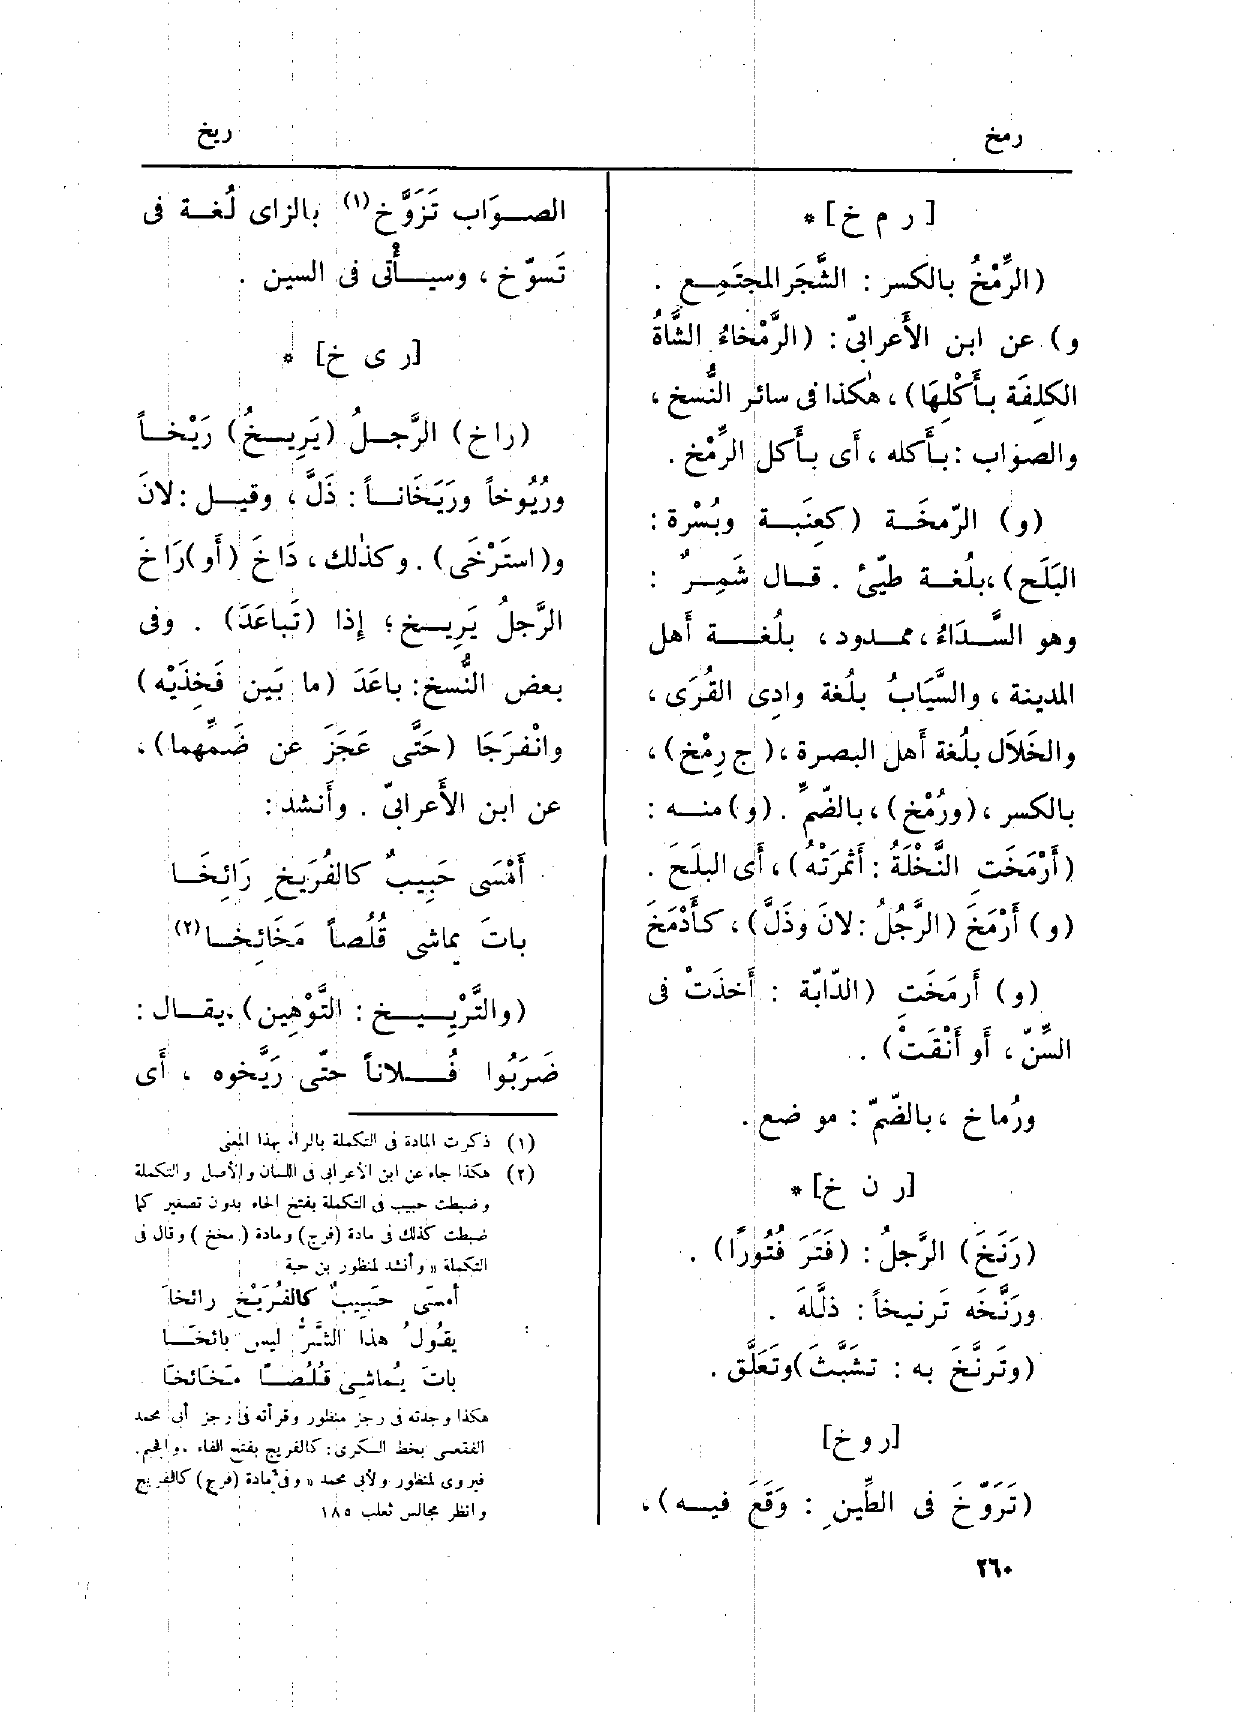 رمخ
ريخ
[ ر م خ ] *
(الرِّمْخُ بالكسر : الشَّجَر المجتَمِـع .
و) عن ابن الأَعرابىّ : (الرَّمْخاءُ الشَّاةُ
الكلِفَة بأَكْلِهَا) ، هٰكذا فى سائر النُّسخ ،
والصوَاب : بأَكله ، أى بأَكل الرِّمْخ .
(و) الرّمخَـة (كعِنَبـة وبُسْرة :
البَلَح) ، بلُغـة طيّئ . قـال شَمِـرٌ :
وهو السَّـدَاءُ ، ممـدود ، بلُغــة أَهل
المدينة ، والسَّيَابُ بلُغة وادِى القُرَى ،
والخَلاَل بلُغة أَهل البصرة ، ( ج رِمْخ ) ،
بالكسر ، (ورُمْخ) ، بالضّمّ . (و) منـه :
(أَرْمَخَتِ النَّخْلَةُ : أَثمَرَتْهُ) ، أَى البلَحَ .
(و) أَرْمَخَ (الرَّجُلُ : لاَنَ وذَلَّ) ، كأَدْمَخَ
(و) أَرمَخَتِ (الدّابّة : أَخذَتْ فى
السِّنّ ، أَو أَنْقَتْ) .
ورُماخ ، بالضّمّ : موضع .
[ر ن خ] *
(رَنَخَ) الرَّجلُ : (فَتَرَ فُتُورًا) .
ورَنَّخَه تَرنيخاً : ذلَّلَه .
(وتَرنَّخَ به : تشبَّثَ) وتَعَلَّق .
[ر و خ]
(تَرَوّخَ فى الطِّينِ : وَقَعَ فيـه) ،
الصـوَاب تَزَوَّخ (١) بالزاى لُغـة فى
تَسوّخ ، وسيـأْتى فى السين .
[ر ى خ] *
(راخ) الرَّجـلُ (يَرِيـخُ) رَيْخـاً
ورُيُوخاً ورَيَخَانـاً : ذَلَّ ، وقيـل : لاَنَ
و(استَرْخَى) . وكذٰلك ، دَاخَ (أَو) رَاخَ
الرَّجلُ يَرِيـخ ؛ إذا (تَباعَدَ) . وفى
بعض النُّسخ : باعَدَ (ما بَين فَخذَيْه)
وانْفرَجَا (حَتَّى عَجَزَ عن ضَمِّهما) ،
عن ابن الأَعرابىّ . وأَنشد :
أَمْسَى حَبِيبٌ كالفُرَيخِ رَائِخَـا
باتَ يماشى قُلُصاً مَخَائخـا (٢)
(والتَّرْيِـيـخ : التَّوْهِين) . يقـال :
ضَرَبُوا فُـلاناً حتّى رَيَّخوه ، أَى
(١) ذكرت المادة فى التكملة بالراء بهذا المعنى
(٢) هكذا جاء عن ابن الأعرابى فى اللسان والأصل والتكملة
وضبطت حبيب فى التكملة بفتح الحاء بدون تصغير كما
ضبطت كذلك فى مادة (فرج) ومادة (مخخ) وقال فى
التكملة « وأنشد لمنظور بن حبة
أمسَى حَبيبٌ كالفُرَيْخِ رائخاَ
يقولُ هذا الشَّرُّ ليس بائخَـا
باتَ يُماشى قُلُصـًا مخَائخَا
هكذا وجدته فى رجز منظور وقرأته فى رجز أبى محمد
الفقعسى بخط السكرى : كالفريج بفتح الفاء . والجيم .
فيروى لمنظور ولأبى محمد » وفى مادة (فرج) كالفريج
وانظر مجالس ثعلب ١٨٥
٢٦٠